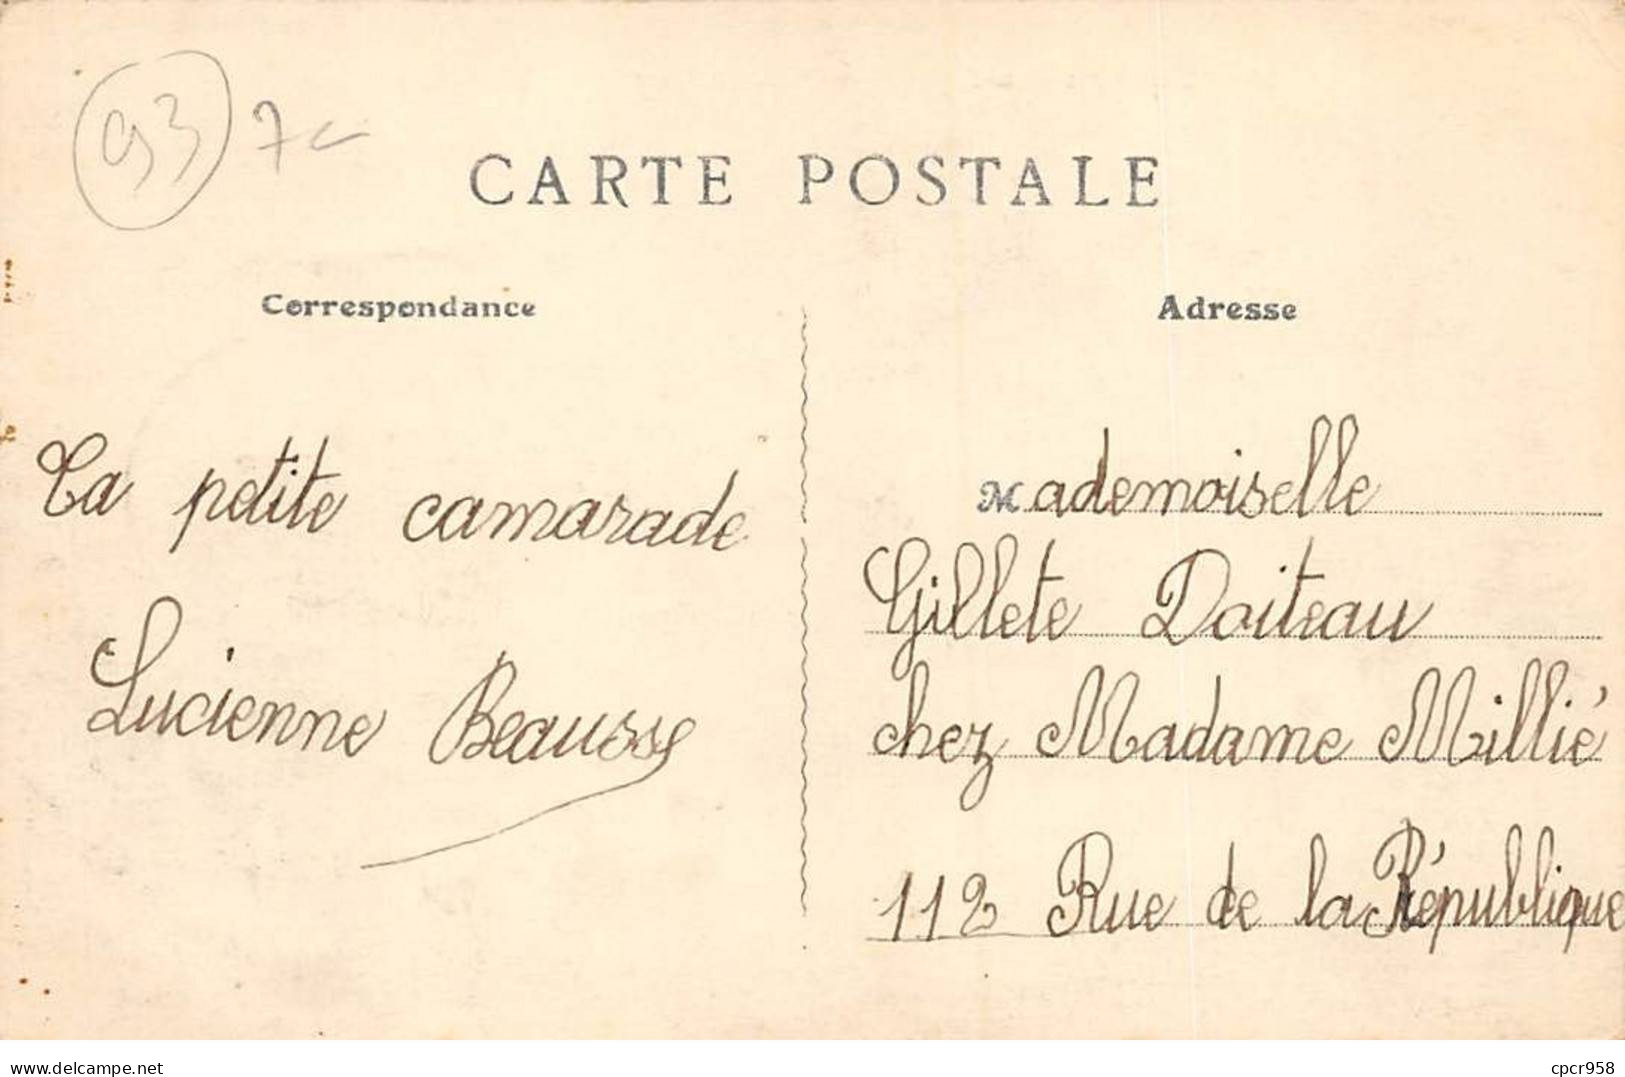 93 7c
CARTE POSTALE
Correspondance
Adresse
Ta petite camarade
Lucienne Beausse
Mademoiselle
Gillete Doiteau
chez Madame Millié
112 Rue de la République
www.delcampe.net
cpcr958